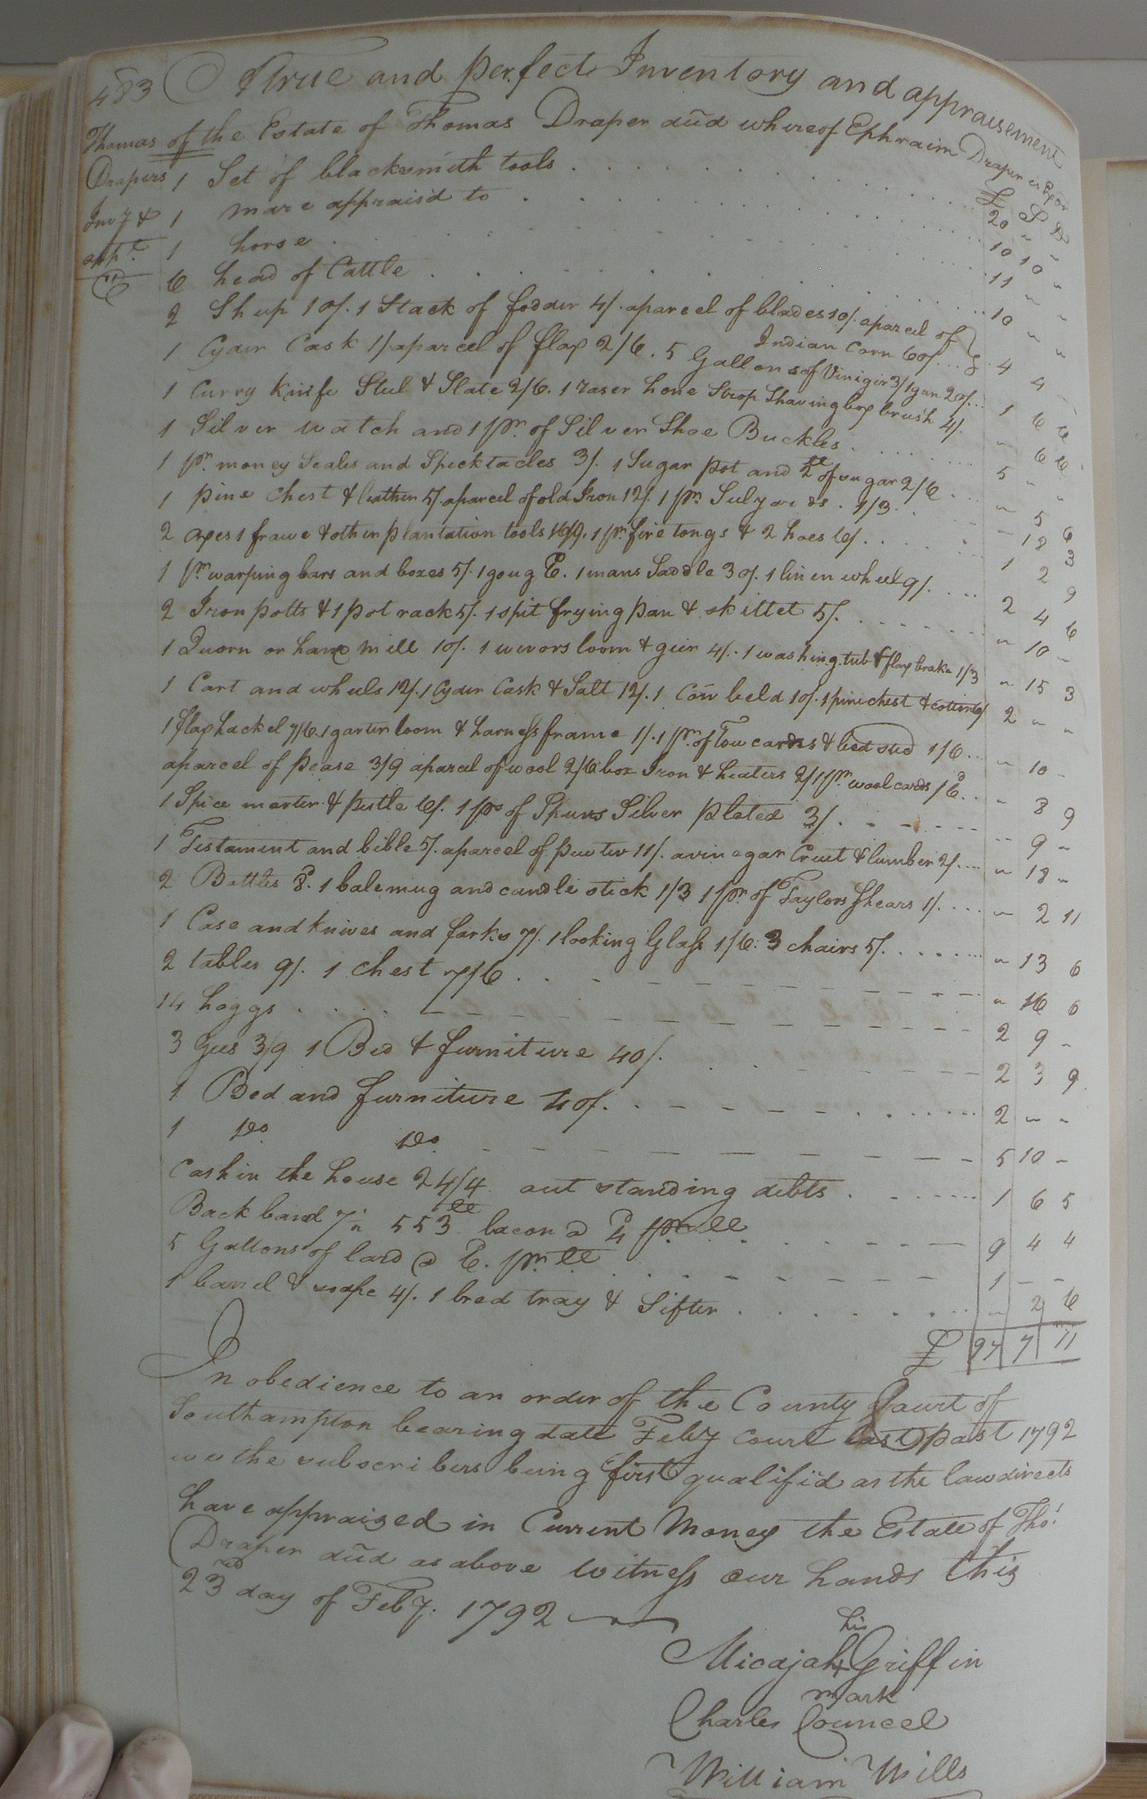 483 A True and perfect Inventory and appraisement
of the Estate of Thomas Draper decd whereof Ephraim Draper is Exor
Thomas Drapers Invy & appt
£ S D
1 Set of blacksmith tools 20 " "
1 mare appraisd to 10 10 "
1 horse 11 " "
6 head of Cattle 10 " "
2 Sheep 10/. 1 Stack of fodder 4/. aparcel of blades 10/. aparcel of Indian Corn 60/. 4 4 "
1 Cyder Cask 1/ aparcel of flax 2/6. 5 Gallons of Vinigir 3/ 1 gun 20/. 1 6 6
1 Curry knife Stul & Slate 2/6. 1 raser hone Strop Shaving box brush 4/. " 6 6
1 Silver watch and 1 pr. of Silver Shoe Buckles 5 " "
1 pr. money Scales and Specktacles 3/. 1 Sugar pot and 2 lb of sugar 2/6 " 5 6
1 pine chest & leather 5/. aparcel of old Iron 12/. 1 pr. 1/3 " 18 3
2 axes 1 frawe & other plantation tools 1 pr. fire tongs & 2 hoes 6/. 1 2 9
1 pr. warping bars and boxes 5/. 1 goug 6. 1 mans Saddle 30/. 1 linen wheel 9/. 2 4 6
2 Iron potts & 1 pot rack 5/. 1 spit frying pan & skillet 5/. " 10 -
1 Quorn or hand mill 10/. 1 wevors loom & geer 4/. 1 washing tub & flax brake 1/3 " 15 3
1 Cart and wheels 12/. 1 Cyder Cask & Salt 12/. 1 Cow beld 10/. 1 pine chest & cotton 6/ 2 " "
1 flax hackel 7/6. 1 garter loom & harness frame 1/. 1 pr. of Tow cards & bed sted 1/6 " 10 -
aparcel of pease 3/9 aparcel of wool 2/6 box Iron & heaters 2/ 1 pr. wool cards /6 " 8 9
1 Spice morter & pestle 6/. 1 pr of Spurs Silver plated 3/. " 9 -
1 Testament and bible 5/. aparcel of puwter 11/. a vinegar Cruet & lumber 2/. " 18 -
2 Bottles 8. 1 bale mug and candle stick 1/3 1 pr. of Taylors Shears 1/. " 2 11
1 Case and knives and forks 7/. 1 looking Glass 1/6. 3 chairs 5/. " 13 6
2 tables 9/. 1 chest 7/6 " 16 6
14 hoggs 2 9 -
3 Gees 3/9 1 Bed & furniture 40/. 2 3 9
1 Bed and furniture 40/. 2 " "
1 Do Do 5 10 -
Cash in the house 24/4 out standing debts 1 6 5
Back band 7/n 553 lb bacon @ 4 pr lb 9 4 4
5 Gallons of lard @ 6. pr. lb 1 - -
1 barrel & 4/. 1 bred tray & Sifter " 2 6
£ 97 7 11
In obedience to an order of the County Court of
Southampton bearing date Feby Court last past 1792
we the subscribers being first qualifid as the law directs
have appraized in Current Money the Estate of Tho.
Draper decd as above witness our hands this
23rd day of Feby. 1792
his
Micajah + Griffin
mark
Charles Councel
William Wills